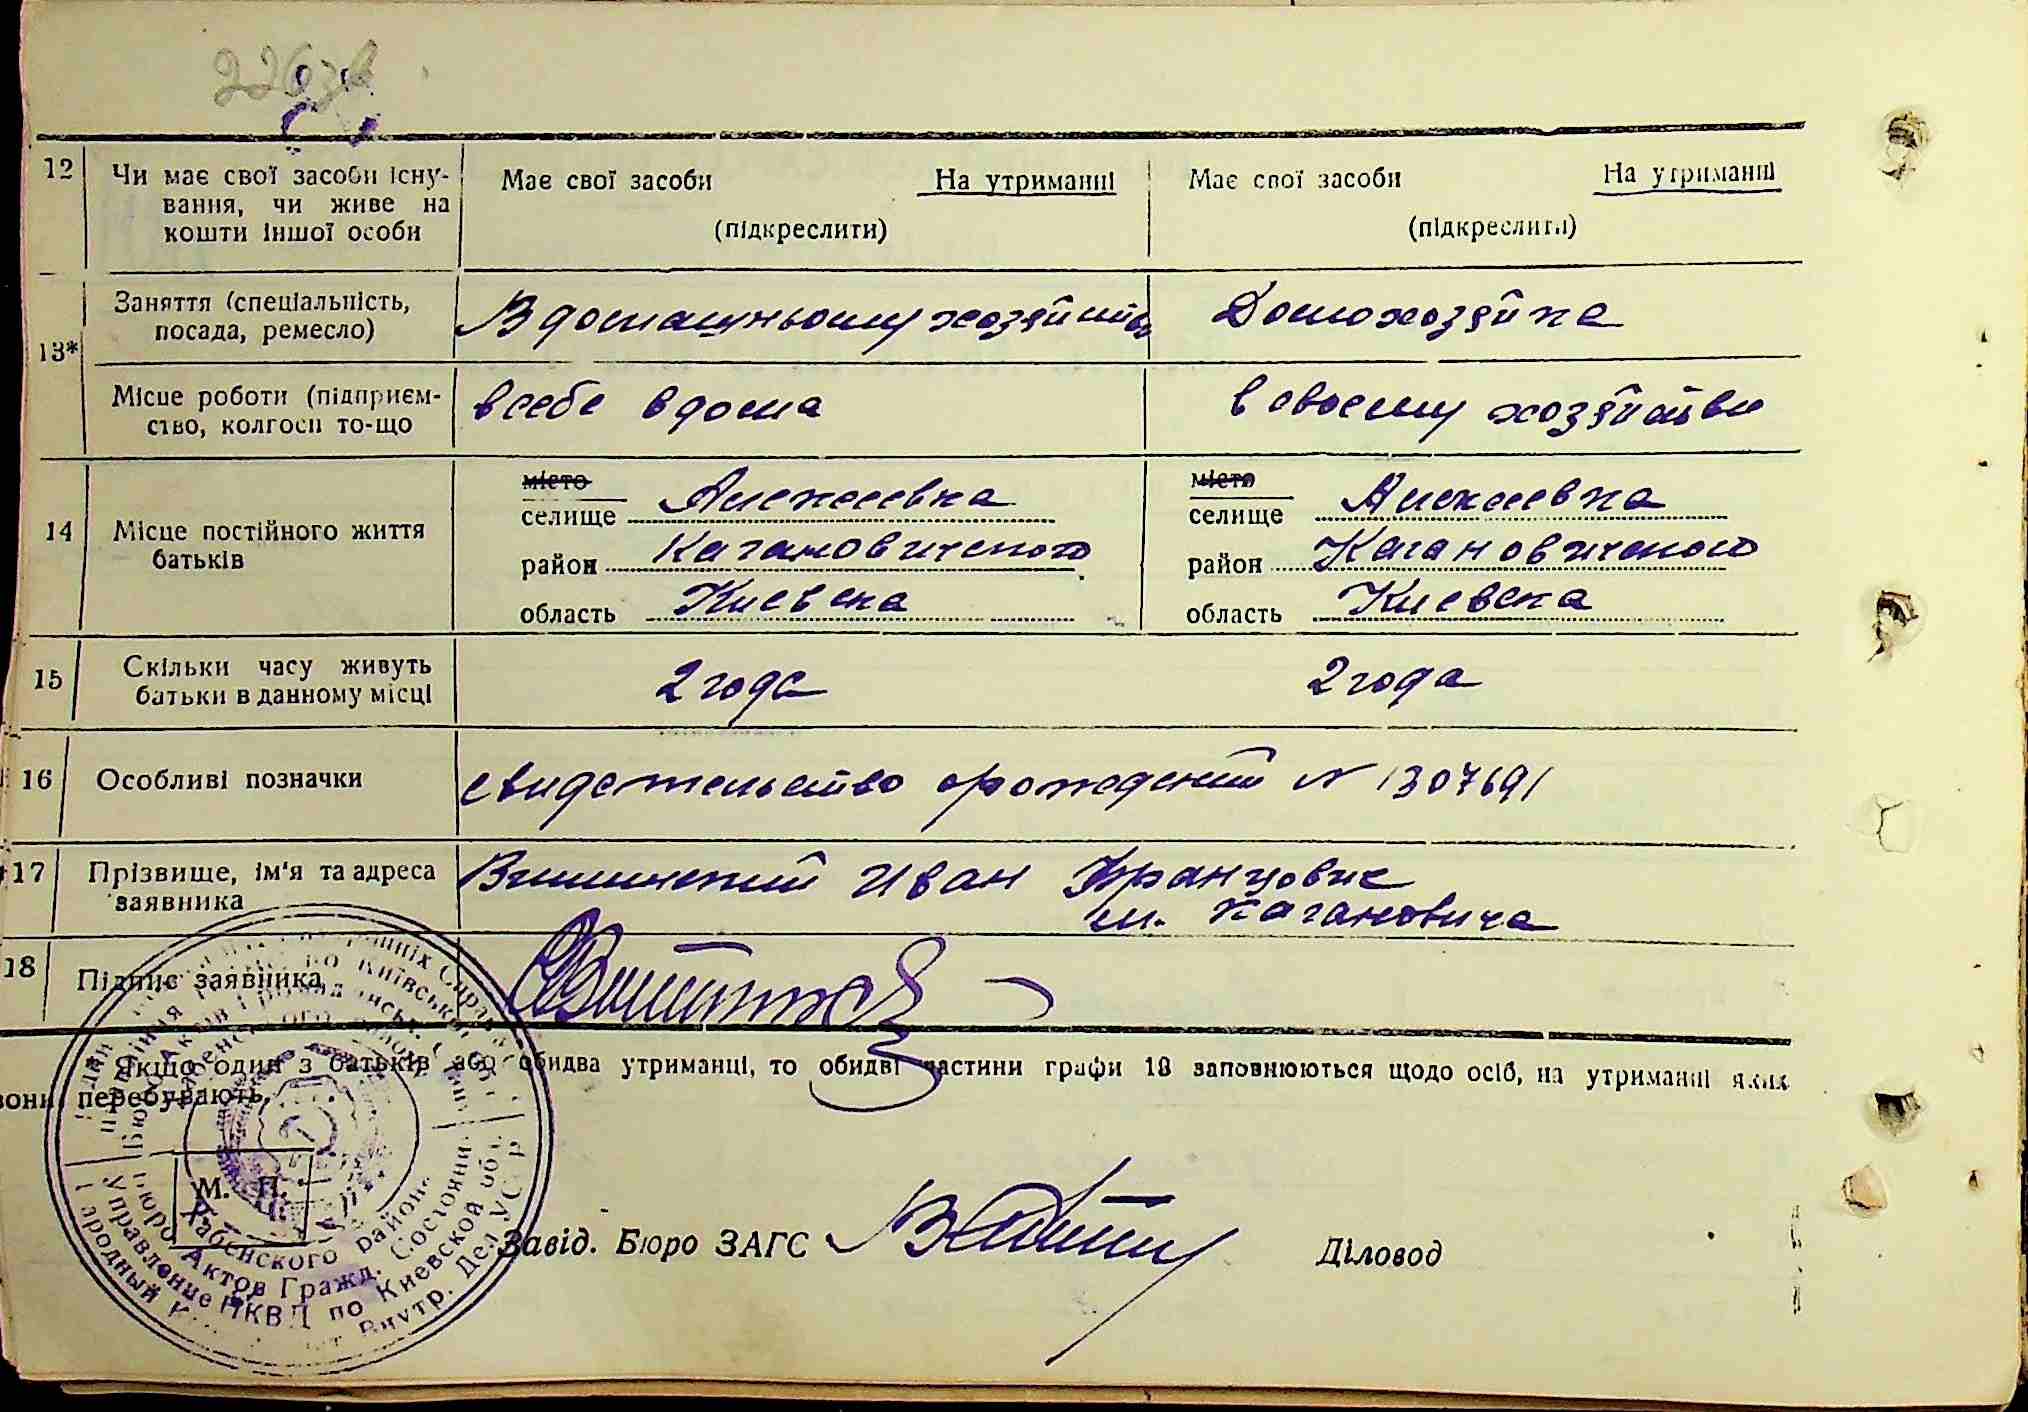 12 Чи має свої засоби існу- Має свої засоби На утриманні Має свої засоби На утриманні
вання, чи живе на
кошти іншої особи (підкреслити) (підкреслити)
13* Заняття (спеціальність, В домашньому хозяйстві Домохозяйка
посада, ремесло)
Місце роботи (підприєм- в себе вдома в своєму хозяйстві
ство, колгосп то-що
14 Місце постійного життя
батьків
місто місто
селище Алексеевка селище Алексеевка
район Кагановического район Кагановического
область Киевска область Киевска
15 Скільки часу живуть 2 года 2 года
батьки в данному місці
16 Особливі позначки свидетельство о рождений № 1307691
17 Прізвище, ім'я та адреса Иван Францович
заявника м. Кагановича
18 Підпис заявника
Якщо один з батьків або обидва утриманці, то обидві частини графи 13 заповнюються щодо осіб, на утриманні яких
вони перебувають.
М. П.
Хабенского района
Бюро Актов Гражд. Состояни
Управление НКВД по Киевской обл.
Народный Внутр. Дел УССР
Завід. Бюро ЗАГС Діловод